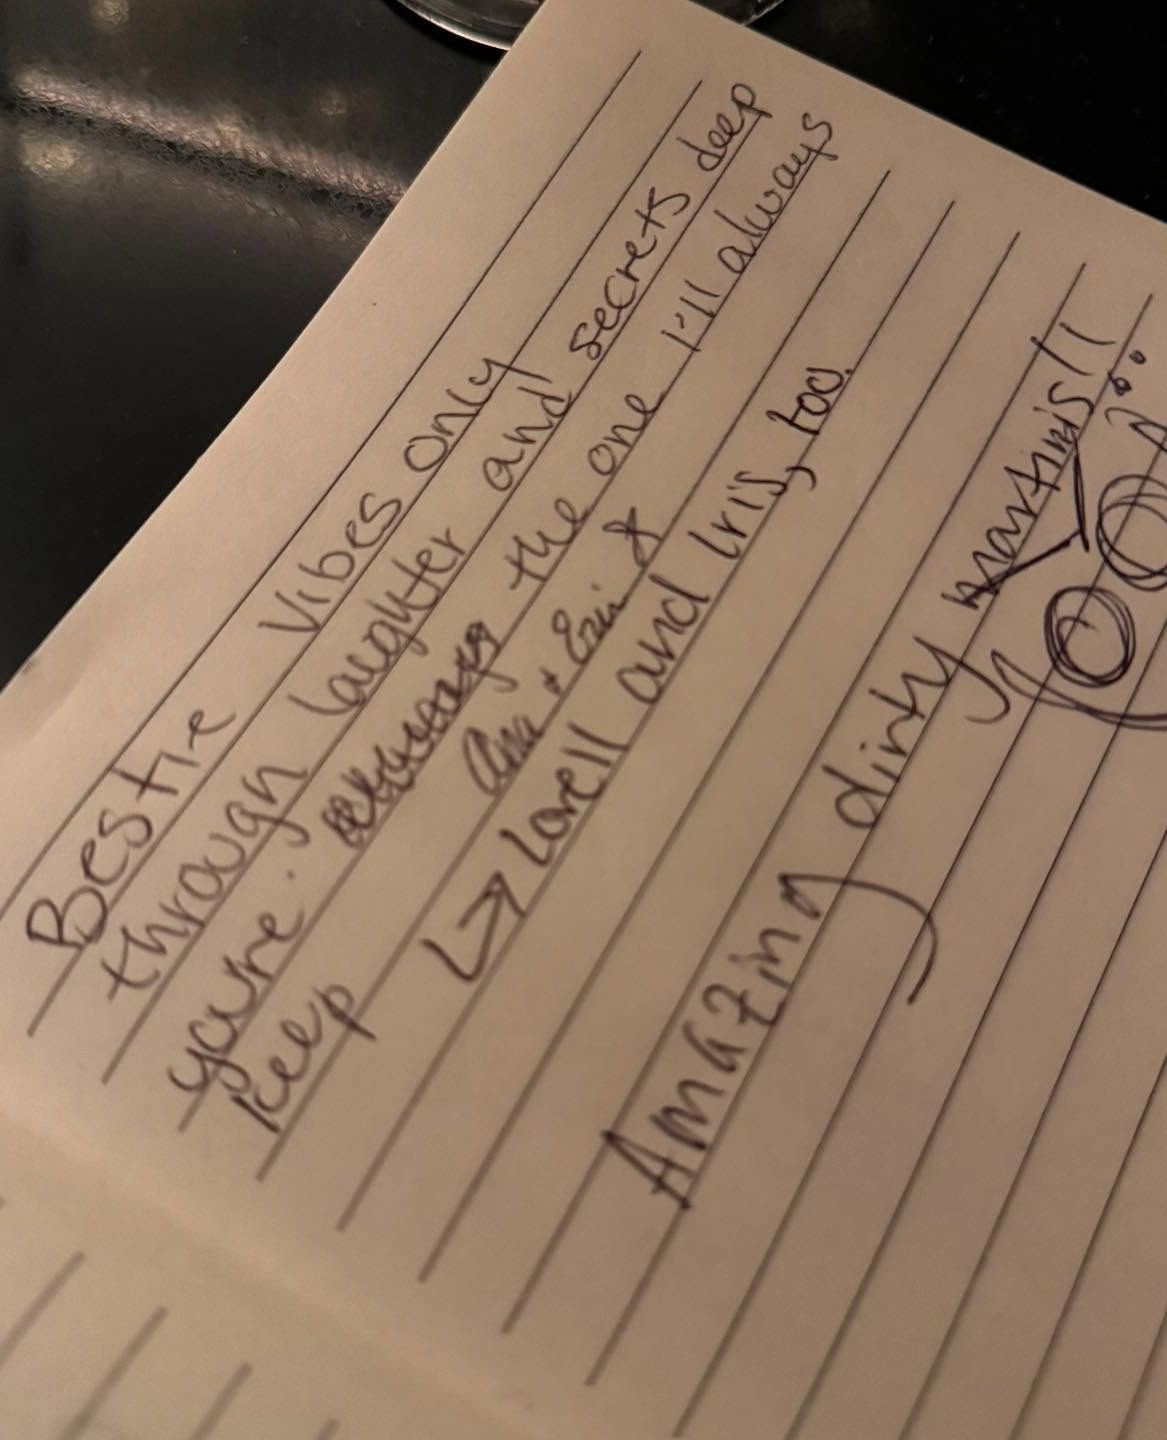 Bestie Vibes only
through laughter and secrets deep
you're the one I'll always
keep
Ana + Erin &
Lorell and Iris, too.
Amazing dirty martinis!!